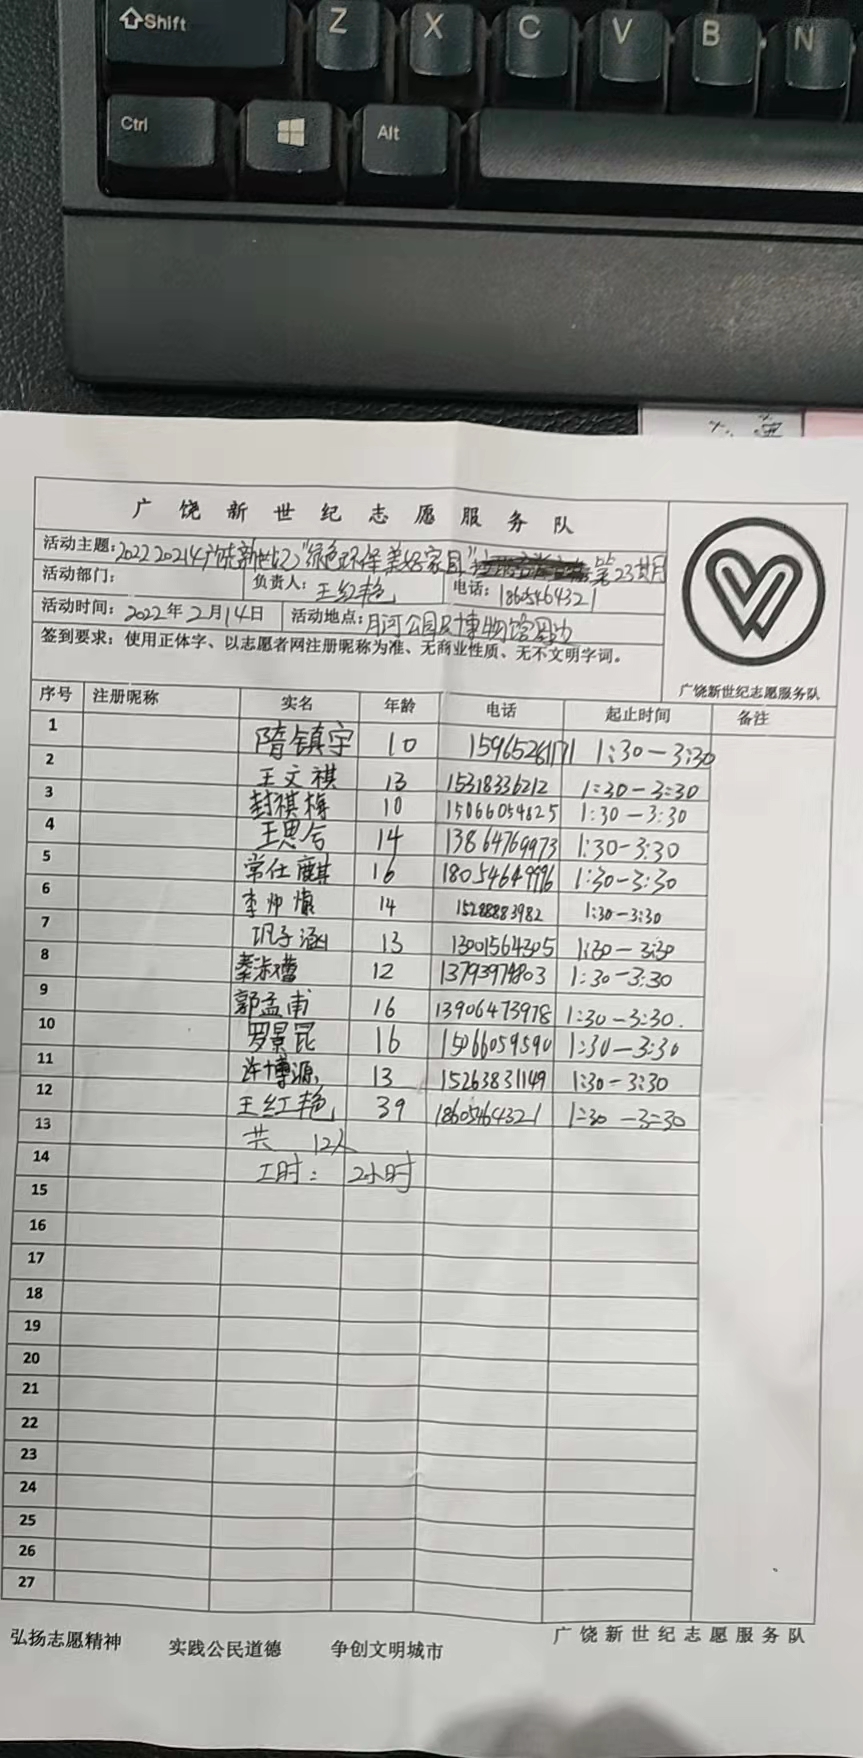 Shift Z X C V B N
Ctrl Alt
广饶新世纪志愿服务队
活动主题：20220214广饶新世纪"绿色环保美好家园"第23期
活动部门： 负责人：王红艳 电话：18605464321
活动时间：2022年2月14日 活动地点：月河公园及博物馆周边
签到要求：使用正体字、以志愿者网注册昵称为准、无商业性质、无不文明字词。
广饶新世纪志愿服务队
序号 注册昵称 实名 年龄 电话 起止时间 备注
1 隋镇宇 10 15965261171 1:30-3:30
2 王文祺 13 15318336212 1:30-3:30
3 封祺梅 10 15066054825 1:30-3:30
4 王思合 14 13864769973 1:30-3:30
5 常仕麒 16 18054649996 1:30-3:30
6 李帅康 14 15288883982 1:30-3:30
7 巩子涵 13 13001564305 1:30-3:30
8 12 13793979803 1:30-3:30
9 郭孟甫 16 13906473978 1:30-3:30.
10 罗景昆 16 15066059590 1:30-3:30
11 许博源 13 15263831149 1:30-3:30
12 王红艳 39 18605464321 1:30-3:30
13 共 12人
14 工时： 2小时
15
16
17
18
19
20
21
22
23
24
25
26
27
弘扬志愿精神 实践公民道德 争创文明城市 广饶新世纪志愿服务队